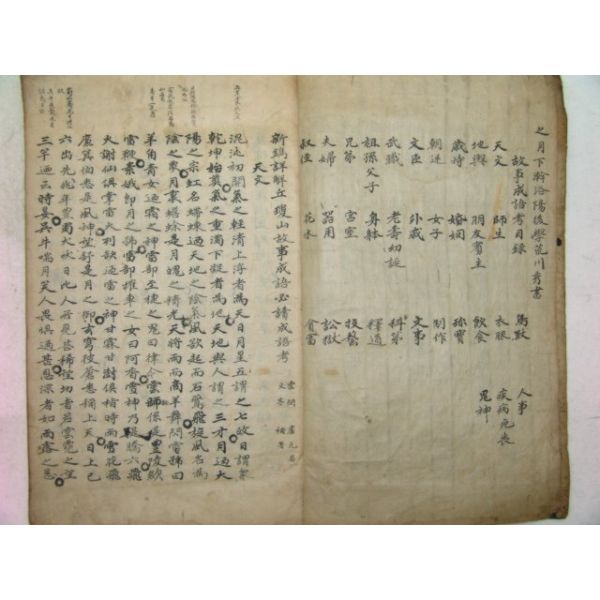 之月下澣洛陽後學荒川秀書
故事成語考目錄
天文 師生 馬政 人事
地輿 朋友賓主 衣服 疾病死喪
歲時 婚姻 飲食 鬼神
朝廷 女子 珍寶
文臣 外戚 制作
武職 老壽幼誕 文事
祖孫父子 身體 科第
兄弟 宮室 釋道
夫婦 器用 技藝
叔侄 花木 訟獄
貧富
新鐫詳解丘瓊山故事成語必讀成語考
天文
混沌初開氣之輕清上浮者爲天日月星五謂之七政日謂衆
乾坤始奠氣之重濁下凝者爲地天地與人謂之三才月迺太
陽之宗虹名螮蝀迺天地之陰氣風欲起而石鷰飛旋風名爲
陰之象月裏蟾蜍是月魄之精光天將雨而商羊舞閃電號曰
羊角青女迺霜之神雷部至捷之鬼曰律令雲師係是豐隆欻
雷鞭素娥卽月之號雷部推車之女曰阿香雪神乃是滕六飛
火謝仙俱掌雷火列缺迺電之神甘霖甘澍俱稱時雨雪花飛
廉箕伯悉是風神望舒是月之御玄穹彼蒼悉稱上天日上已
六出先兆年豐蜀犬吠日比人所見甚稀望切者若雲霓之望
三竿迺云時晏吳牛喘月笑人畏懼過甚恩深者如雨露之恩